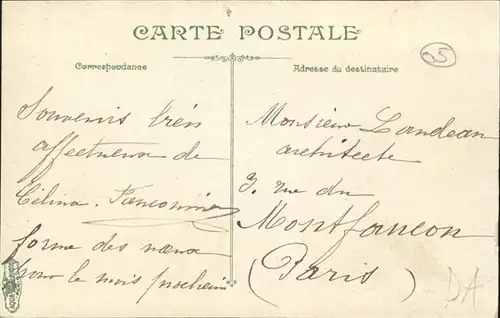 CARTE POSTALE
05
Correspondance
Adresse du destinataire
Souvenirs très
affectueux de
Célina
forme des vœux
pour le mois prochain
Monsieur Landeau
architecte
3, rue du
Montfaucon
(Paris)
DA